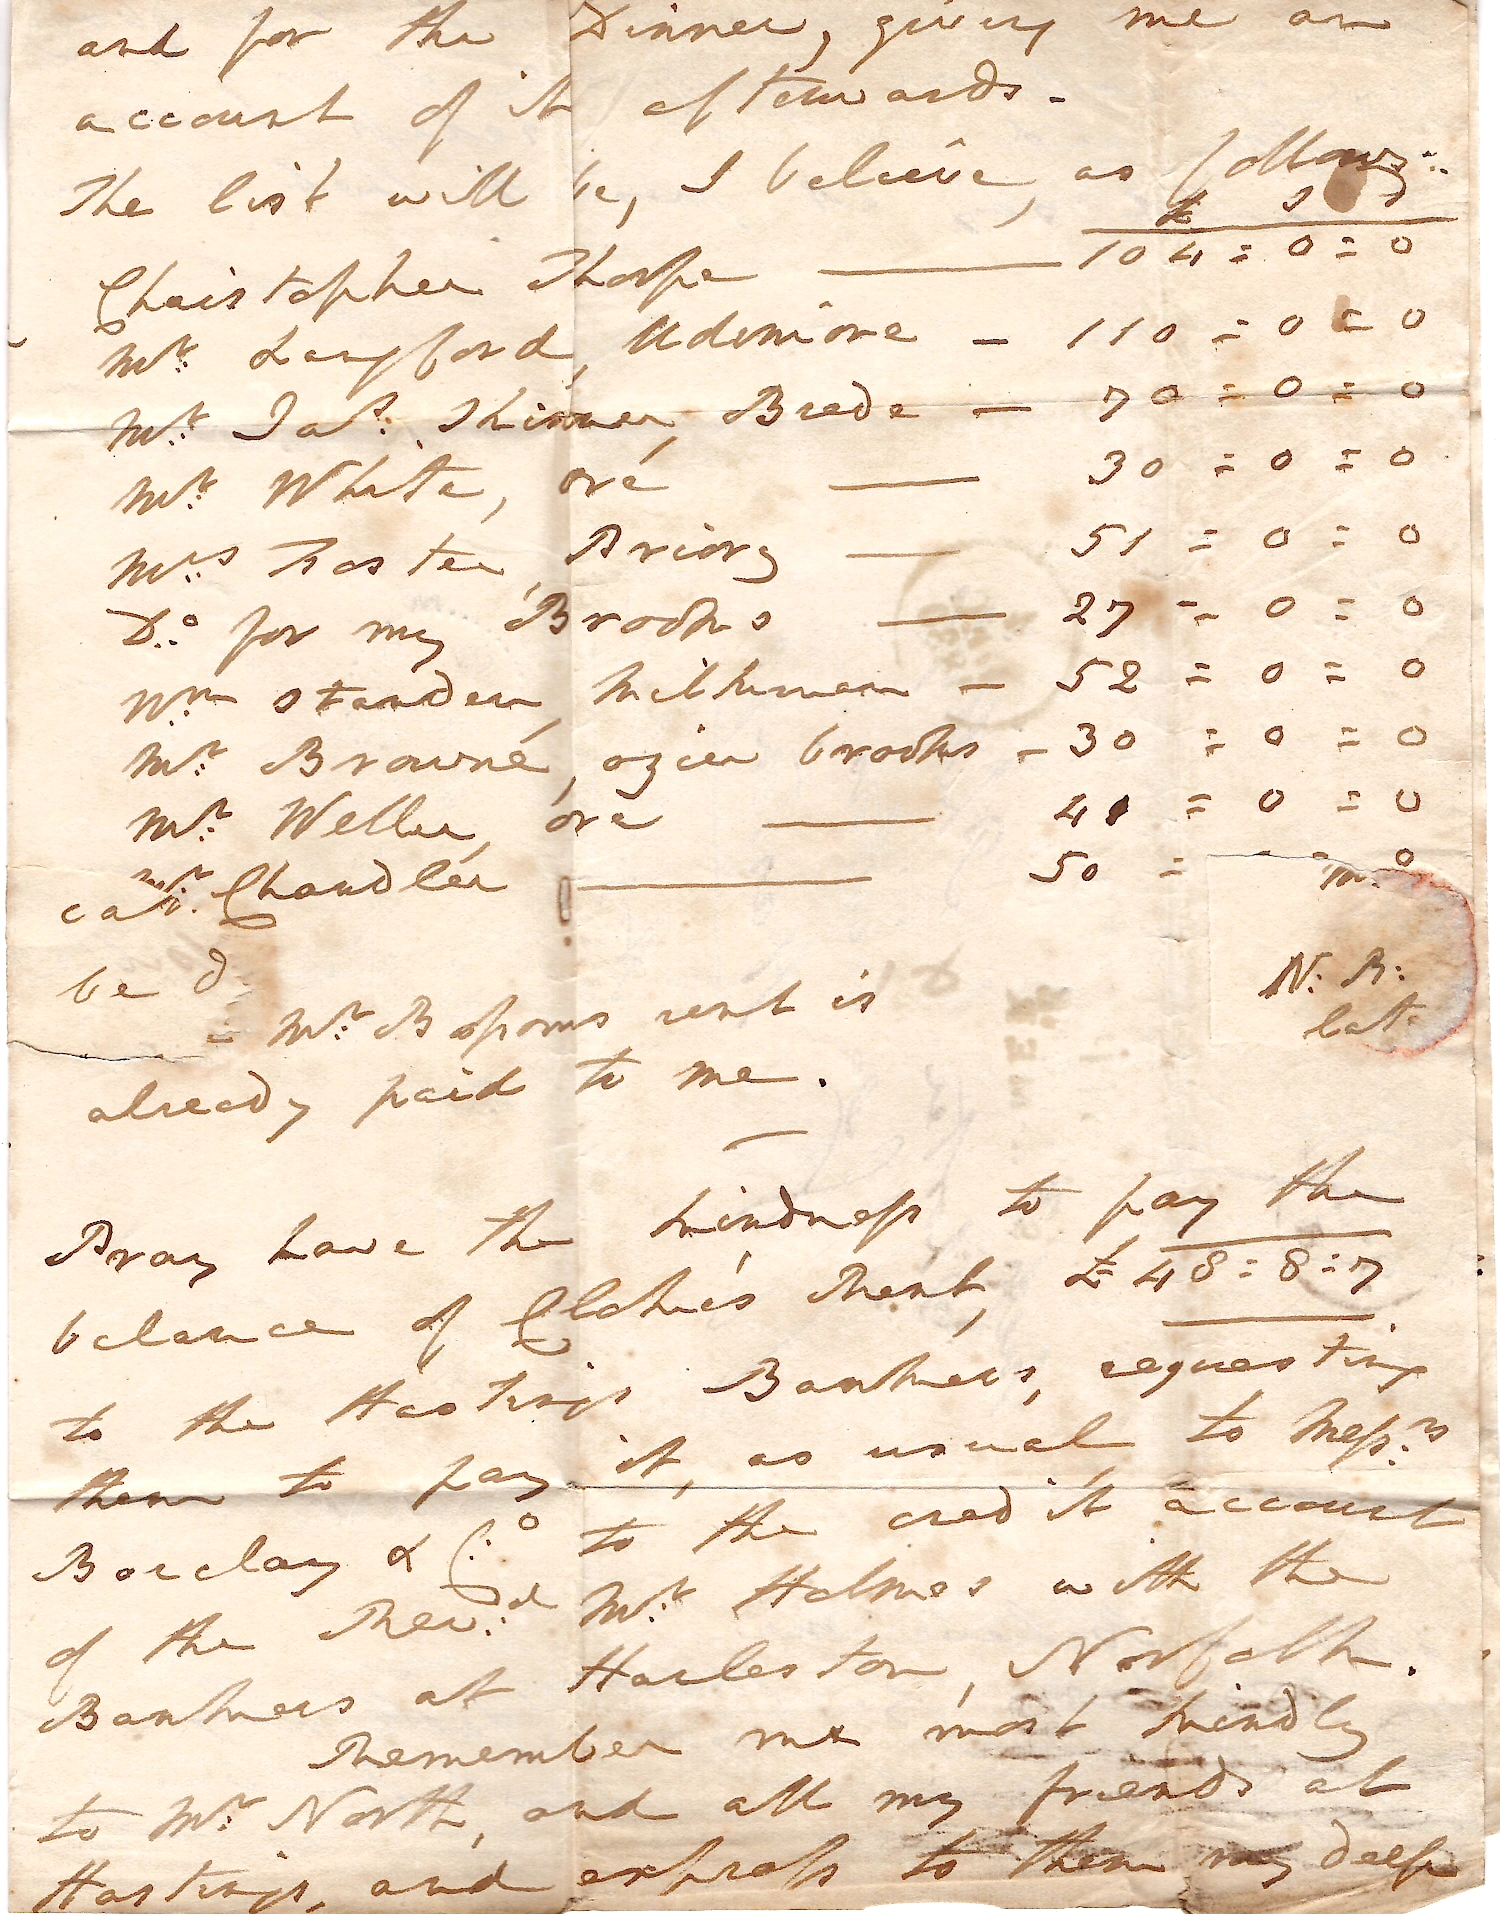 and for the Dinner, giving me an
account of it afterwards -
The list will be, I believe, as follows:
£ s d
Christopher Thorpe — 104 = 0 = 0
Mr. Langford, Udimore - 110 = 0 = 0
Mr. Jas. Skinner, Brede - 70 = 0 = 0
Mr. White, Ore — 30 = 0 = 0
Mrs. Foster, Priory — 51 = 0 = 0
Do. for my Brooks — 27 = 0 = 0
Wm. Standen, Milkman - 52 = 0 = 0
Mr. Browne, ozier brooks - 30 = 0 = 0
Mr. Weller, Ore — 41 = 0 = 0
Mr. Chandler — 50 = 0
N: B:
be
Mr. Bossoms rent is
late
already paid to me.
Pray have the kindness to pay the
balance of Elphie's Rent, £48 = 8 = 7
to the Hastings Bankers, requesting
them to pay it, as usual to Messrs.
Barclay & Co. to the credit account
of the Revd. Mr. Holmes with the
Bankers at Harleston, Norfolk.
Remember me most kindly
to Mr. North, and all my friends at
Hastings, and express to them my deep